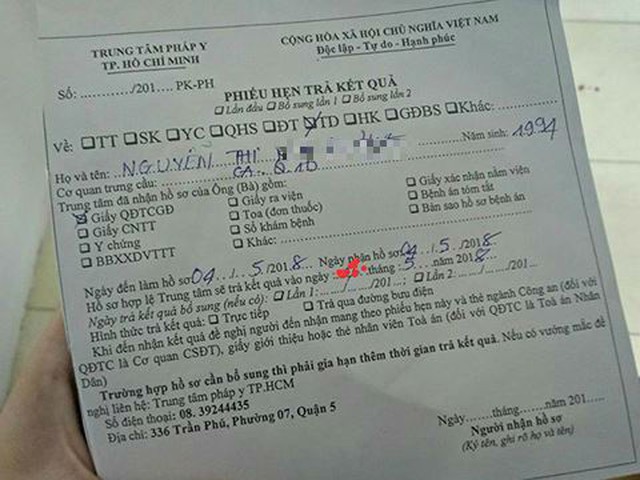 TRUNG TÂM PHÁP Y
TP. HỒ CHÍ MINH
CỘNG HÒA XÃ HỘI CHỦ NGHĨA VIỆT NAM
Độc lập - Tự do - Hạnh phúc
Số: ............/201...... PK-PH
PHIẾU HẸN TRẢ KẾT QUẢ
☐ Lần đầu ☐ Bổ sung lần 1 ☐ Bổ sung lần 2
Về: ☐TT ☐SK ☐YC ☐QHS ☐ĐT ☑TD ☐HK ☐GĐBS ☐Khác:
Họ và tên: NGUYỄN THỊ Năm sinh: 1994
Cơ quan trưng cầu: CA. Q.10
Trung tâm đã nhận hồ sơ của Ông (Bà) gồm:
☑ Giấy QĐTCGĐ ☐ Giấy ra viện ☐ Giấy xác nhận nằm viện
☐ Giấy CNTT ☐ Toa (đơn thuốc) ☐ Bệnh án tóm tắt
☐ Y chứng ☐ Sổ khám bệnh ☐ Bản sao hồ sơ bệnh án
☐ BBXXDVTTT ☐ Khác:
Ngày đến làm hồ sơ 04 / 5 /2018 Ngày nhận hồ sơ 04 / 5 /2018
Hồ sơ hợp lệ Trung tâm sẽ trả kết quả vào ngày: tháng 5 năm 2018
Ngày trả kết quả bổ sung (nếu có): ☐ Lần 1: ....../....../201...; ☐ Lần 2: ....../....../201...
Hình thức trả kết quả: ☐ Trực tiếp ☐ Trả qua đường bưu điện
Khi đến nhận kết quả đề nghị người đến nhận mang theo phiếu hẹn này và thẻ ngành Công an (đối với
QĐTC là Cơ quan CSĐT), giấy giới thiệu hoặc thẻ nhân viên Toà án (đối với QĐTC là Toà án Nhân
Dân)
Trường hợp hồ sơ cần bổ sung thì phải gia hạn thêm thời gian trả kết quả. Nếu có vướng mắc đề
nghị liên hệ: Trung tâm pháp y TP.HCM
Số điện thoại: 08. 39244435
Địa chỉ: 336 Trần Phú, Phường 07, Quận 5
Ngày.......tháng.......năm 201.....
Người nhận hồ sơ
(Ký tên, ghi rõ họ và tên)